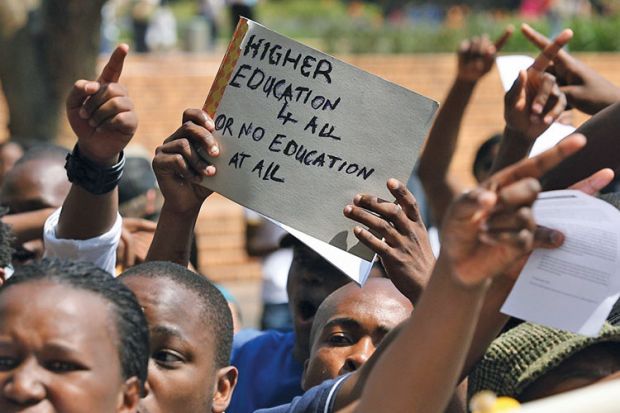 HIGHER
EDUCATION
4 ALL
OR NO EDUCATION
AT ALL